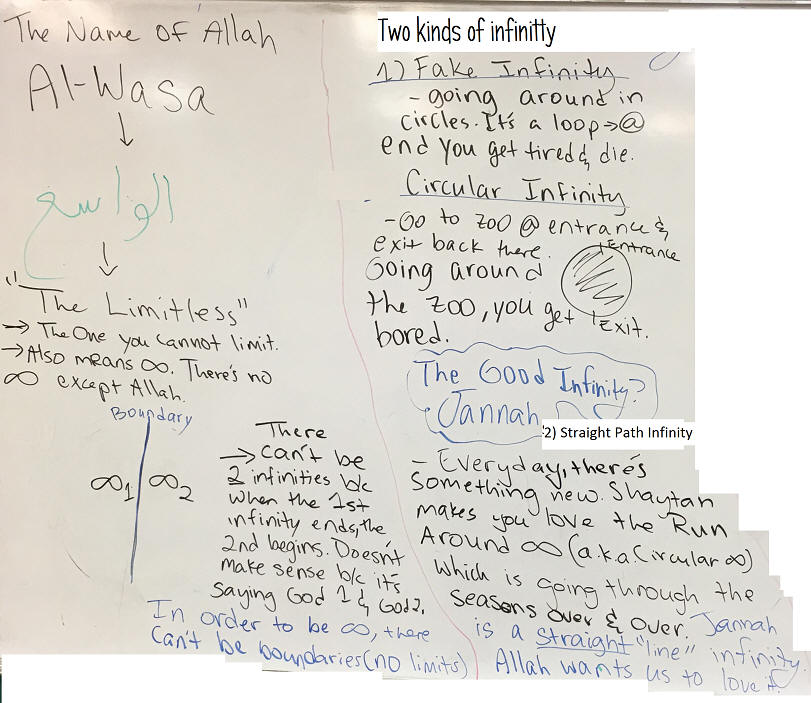 The Name of Allah
Al-Wasa
الواسع
"The Limitless"
→ The One you cannot limit.
→ Also means ∞. There's no
∞ except Allah.
Boundary
∞1 ∞2
There
→ can't be
2 infinities b/c
when the 1st
infinity ends, the
2nd begins. Doesn't
make sense b/c it's
saying God 1 & God 2.
In order to be ∞, there
can't be boundaries (no limits)
Two kinds of infinitty
1) Fake Infinity
- going around in
circles. It's a loop → @
end you get tired & die.
Circular Infinity
- Go to zoo @ entrance &
exit back there.
Entrance
Going around
the zoo, you get
Exit.
bored.
The Good Infinity?
Jannah
2) Straight Path Infinity
- Everyday, there's
something new. Shaytan
makes you love the Run
Around ∞ (a.k.a. Circular ∞)
which is going through the
seasons over & over. Jannah
is a straight "line" infinity.
Allah wants us to love it.